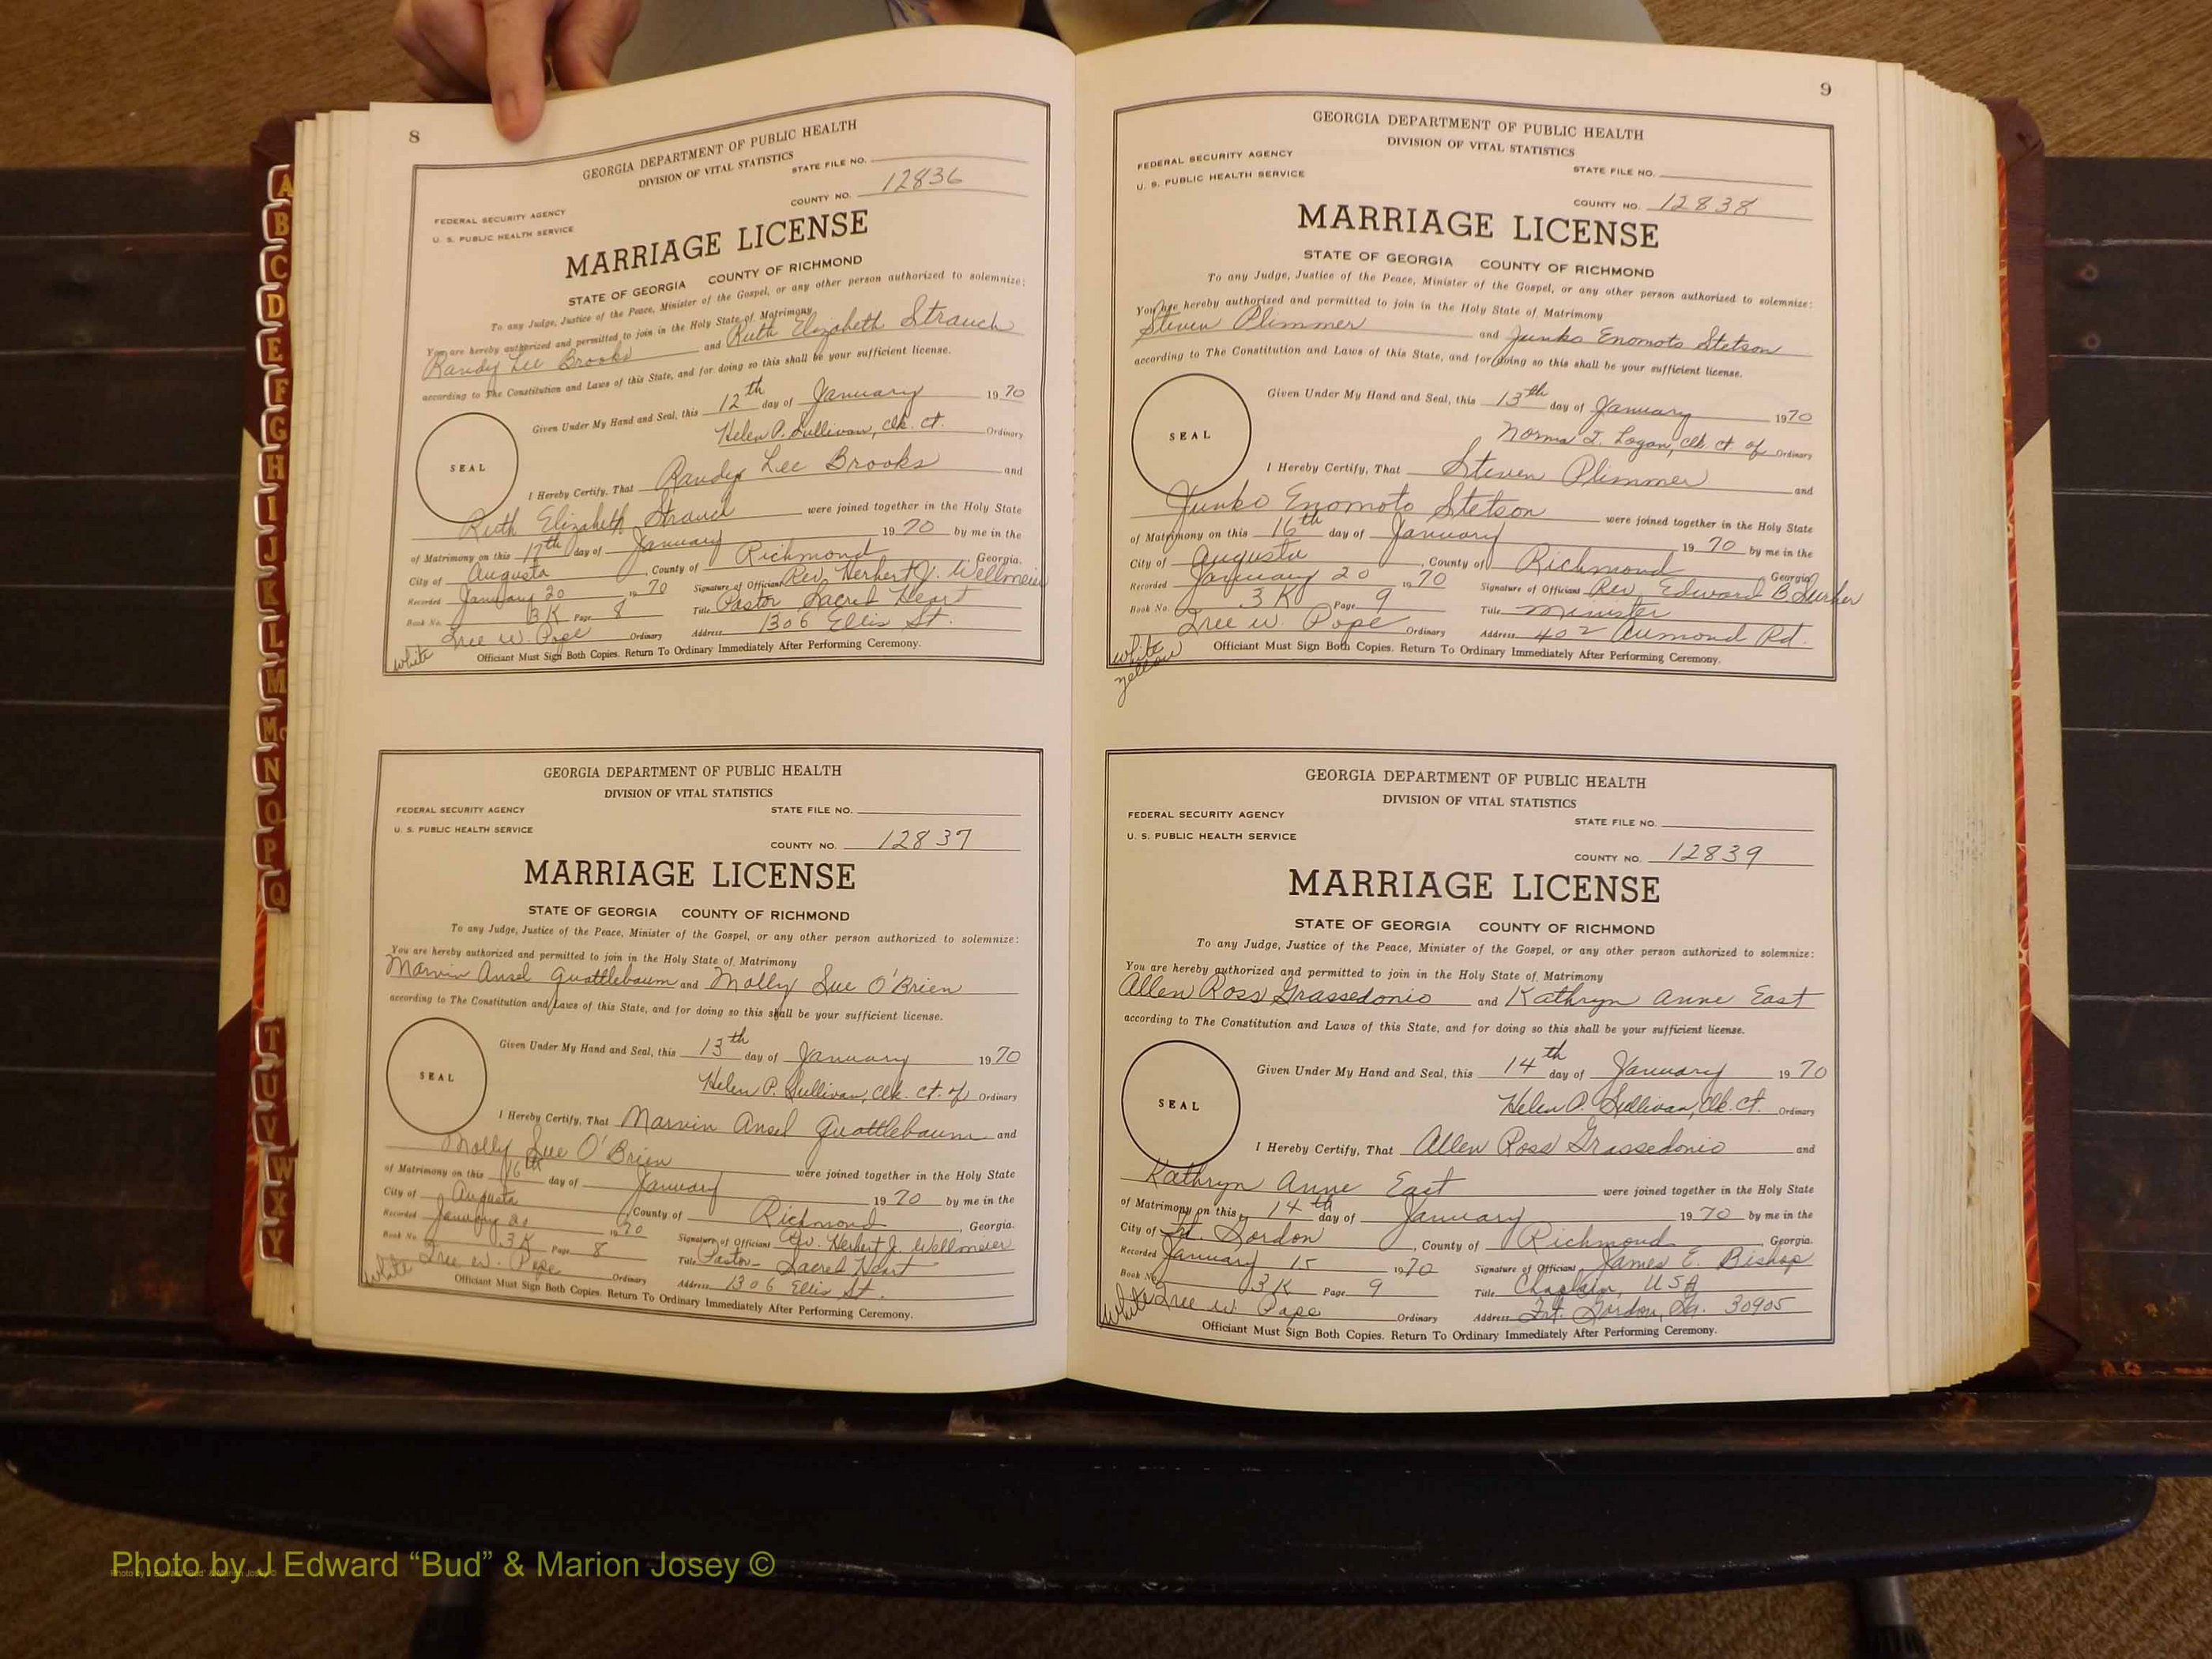 8
GEORGIA DEPARTMENT OF PUBLIC HEALTH
DIVISION OF VITAL STATISTICS
STATE FILE NO.
COUNTY NO. 12836
FEDERAL SECURITY AGENCY
U. S. PUBLIC HEALTH SERVICE
MARRIAGE LICENSE
STATE OF GEORGIA COUNTY OF RICHMOND
To any Judge, Justice of the Peace, Minister of the Gospel, or any other person authorized to solemnize:
You are hereby authorized and permitted to join in the Holy State of Matrimony
Randy Lee Brooks and Ruth Elizabeth Strauch
according to The Constitution and Laws of this State, and for doing so this shall be your sufficient license.
Given Under My Hand and Seal, this 12th day of January 1970
Helen P. Sullivan, Clk. Ct. Ordinary
SEAL
I Hereby Certify, That Randy Lee Brooks and
Ruth Elizabeth Strauch were joined together in the Holy State
of Matrimony on this 17th day of January 1970 by me in the
City of Augusta, County of Richmond, Georgia.
Recorded January 20 1970 Signature of Officiant Rev. Herbert J. Wellmeier
Book No. 3K Page 8 Title Pastor Sacred Heart
Tree W. Pope Ordinary Address 1306 Ellis St.
white
Officiant Must Sign Both Copies. Return To Ordinary Immediately After Performing Ceremony.
GEORGIA DEPARTMENT OF PUBLIC HEALTH
DIVISION OF VITAL STATISTICS
FEDERAL SECURITY AGENCY STATE FILE NO.
U. S. PUBLIC HEALTH SERVICE
COUNTY NO. 12837
MARRIAGE LICENSE
STATE OF GEORGIA COUNTY OF RICHMOND
To any Judge, Justice of the Peace, Minister of the Gospel, or any other person authorized to solemnize:
You are hereby authorized and permitted to join in the Holy State of Matrimony
Marvin Ansel Quattlebaum and Molly Sue O'Brien
according to The Constitution and Laws of this State, and for doing so this shall be your sufficient license.
Given Under My Hand and Seal, this 13th day of January 1970
Helen P. Sullivan, Clk. Ct. of Ordinary
SEAL
I Hereby Certify, That Marvin Ansel Quattlebaum and
Molly Sue O'Brien were joined together in the Holy State
of Matrimony on this 16th day of January 1970 by me in the
City of Augusta, County of Richmond, Georgia.
Recorded January 1970 Signature of Officiant Rev. Herbert J. Wellmeier
Book No. 3K Page 8 Title Pastor - Sacred Heart
Tree W. Pope Ordinary Address 1306 Ellis St.
white
Officiant Must Sign Both Copies. Return To Ordinary Immediately After Performing Ceremony.
9
GEORGIA DEPARTMENT OF PUBLIC HEALTH
DIVISION OF VITAL STATISTICS
FEDERAL SECURITY AGENCY
U. S. PUBLIC HEALTH SERVICE
STATE FILE NO.
COUNTY NO. 12838
MARRIAGE LICENSE
STATE OF GEORGIA COUNTY OF RICHMOND
To any Judge, Justice of the Peace, Minister of the Gospel, or any other person authorized to solemnize:
You are hereby authorized and permitted to join in the Holy State of Matrimony
Steven Plimmer and Junko Enomoto Stetson
according to The Constitution and Laws of this State, and for doing so this shall be your sufficient license.
Given Under My Hand and Seal, this 13th day of January 1970
Norma T. Logan, Clk. Ct. of Ordinary
SEAL
I Hereby Certify, That Steven Plimmer and
Junko Enomoto Stetson were joined together in the Holy State
of Matrimony on this 16th day of January 1970 by me in the
City of Augusta, County of Richmond, Georgia
Recorded January 20 1970 Signature of Officiant Rev. Edward B.
Book No. 3K Page 9 Title Minister
Tree W. Pope Ordinary Address 402 Aumond Rd.
white
yellow
Officiant Must Sign Both Copies. Return To Ordinary Immediately After Performing Ceremony.
GEORGIA DEPARTMENT OF PUBLIC HEALTH
DIVISION OF VITAL STATISTICS
FEDERAL SECURITY AGENCY
STATE FILE NO.
U. S. PUBLIC HEALTH SERVICE
COUNTY NO. 12839
MARRIAGE LICENSE
STATE OF GEORGIA COUNTY OF RICHMOND
To any Judge, Justice of the Peace, Minister of the Gospel, or any other person authorized to solemnize:
You are hereby authorized and permitted to join in the Holy State of Matrimony
Allen Ross Grassedonio and Kathryn Anne East
according to The Constitution and Laws of this State, and for doing so this shall be your sufficient license.
Given Under My Hand and Seal, this 14th day of January 1970
Helen P. Sullivan, Clk. Ct. Ordinary
SEAL
I Hereby Certify, That Allen Ross Grassedonio and
Kathryn Anne East were joined together in the Holy State
of Matrimony on this 14th day of January 1970 by me in the
City of Ft. Gordon, County of Richmond, Georgia.
Recorded January 15 1970 Signature of Officiant James E. Bishop
Book No. 3K Page 9 Title Chaplain, USA
Tree W. Pope Ordinary Address Ft. Gordon, Ga. 30905
white
Officiant Must Sign Both Copies. Return To Ordinary Immediately After Performing Ceremony.
A
B
C
D
E
F
G
H
I
J
K
L
M
Mc
N
O
P
Q
T
U
V
W
X
Y
Photo by J Edward “Bud” & Marion Josey ©